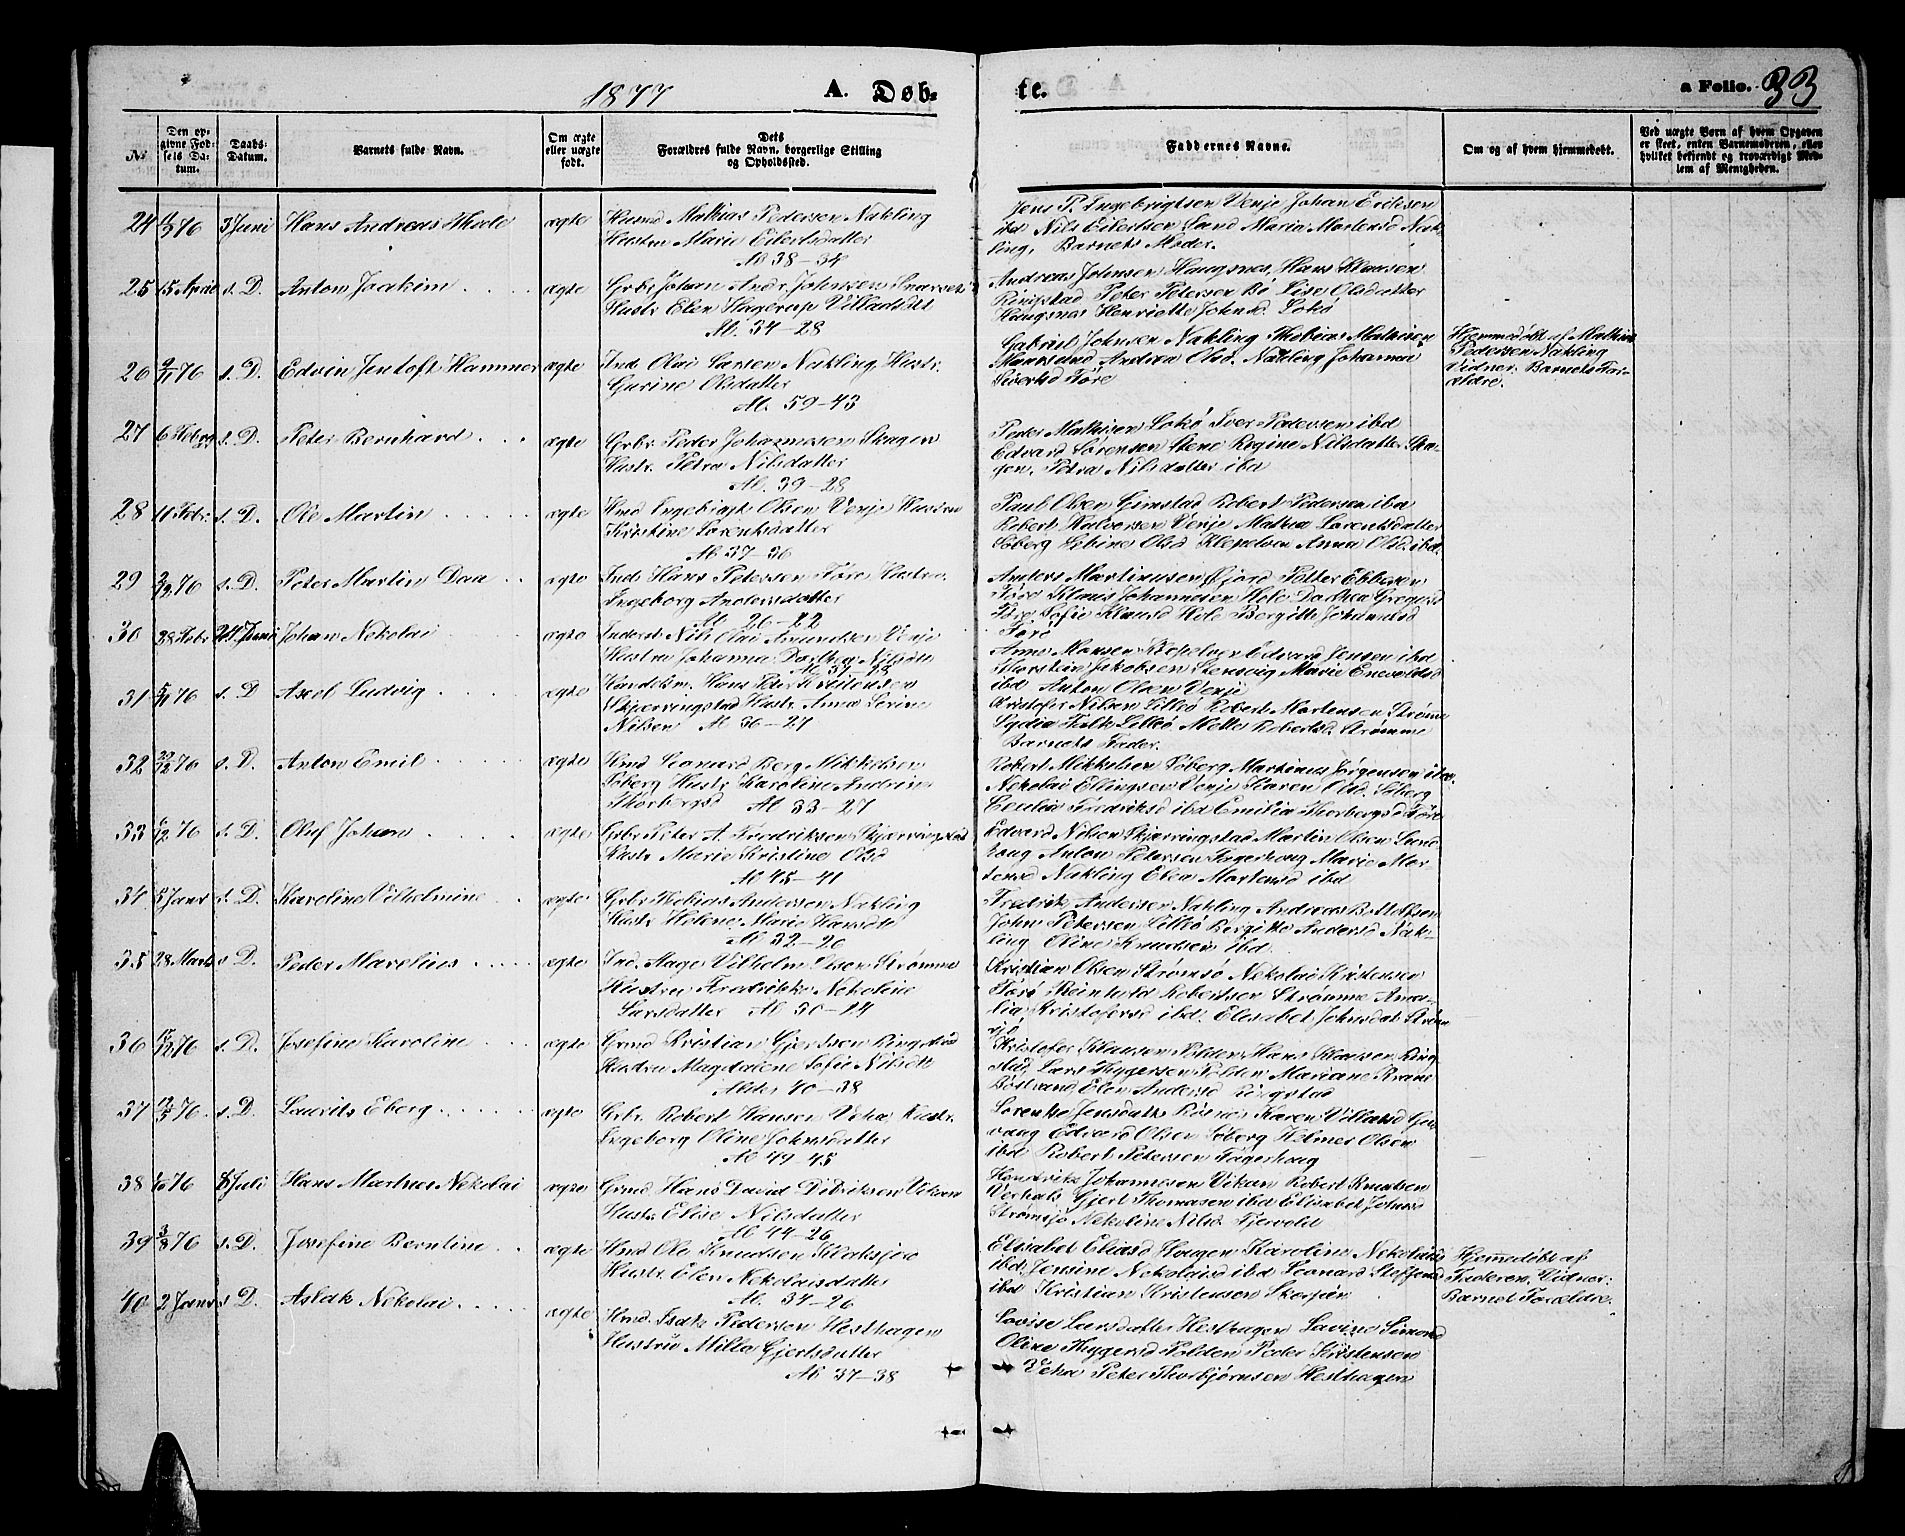 1877
A. Døb-
te.
a Folio. 33
No
Den opgivne Fødsels Datum.
Daabs-Datum.
Barnets fulde Navn.
Om ægte eller uægte født.
Dets Forældres fulde Navn, borgerlige Stilling og Opholdssted.
Faddernes Navne.
Om og af hvem hjemmedøbt.
Ved uægte Børn af hvem Opgaven er skeet, enten Barnemoderen, eller hvilket bekjendt og troværdigt Medlem af Menigheden.
24 76 3 Juni Hans Andreas ægte Husmd Mathias Pedersen Nakling
Hustru Marie Eilertsdatter
Al 38-34
Jens P. Ingebrigtsen Venje Johan Eriksen
ibd Nils Eilertsen Sand Maria Martensd Nak-
ling, Barnets Moder.
25 15 April s. D. Anton Joakim ægte Grbr Johan Andr. Johnsen
Hustr Elen Hagerup Villadsdtt
Al. 34-28
Andreas Johnsen Haugsnes, Hans Klausen
Ringstad Peter Petersen Bø Lise Olsdatter
Haugsnes Henriette Johnsd. Lokø
26 9/11 76 s. D. Edvin Jentoft Hammer ægte Ind Olai Larsen Nakling Hustr.
Gurine Olsdatter
Al. 59-43
Gabriel Johnsen Nakling Thobias Mathisen
Andrea Olsd. Nakling Johanna
Sivertsd Føre
Hjemmedøbt af Mathias
Pedersen Nakling
Vidner. Barnets For-
ældre.
27 6 s. D. Peter Bernhard ægte Grbr. Peder Johannesen Skagen
Hustr. Petra Nilsdatter
Al. 39-28
Peder Mathisen Lokø Iver Pedersen ibd
Edvard Sørensen Stene Regine Nilsdatter Ska-
gen. Petra Nilsdatter ibd
28 11 Febr. s. D. Ole Martin ægte Hmd Ingebrigt Olsen Venje Hustru
Kristine Lorentsdatter
Al 37-36
Paul Olsen Gimstad Robert Pedersen ibd
Robert Halvorsen Venje Mathea Lorentsdatter
Søberg Olsd Klepelven Anna Olsd. ibd.
29 76 s. D. Peter Martin Daa ægte Ind Hans Petersen Føre Hustru
Ingeborg Andersdatter
Al 26-22
Anders Martinusen Fjord Petter Ebbesen
Føre Klaus Johannesen Hole Dorthea Gregersd
Føre Sofie Klausd Hole Bergitte Johannesd
Føre
30 28 Febr 24 Juni Johan Nekolai ægte Inderst Nils Olai Amundsen Venje
Hustru Johanna Dorthea Nilsdtt
Arne Hansen Klepelven Edvard Jensen ibd
Jakobsen Stensvig Marie Enevoldsd
ibd Anton Olsen Venje
31 5/11 76 s. D Axel Ludvig ægte Handelsm. Hans Peter Kristensen
Skjærringstad Hustr. Anna Serine
Nilsen Al 36-27
Kristofer Nilsen Lillø Robert Mortensen Strømme
Lydia Falk Lillø Mette Robertsd. Strømme
Barnets Fader.
32 22/12 76 s. D. Anton Emil ægte Hmd Leonard Berg Mikkelsen
Søberg Hustr Karoline Andrine
Thorbergsd Al 33-27
Robert Mikkelsen Søberg Martinus Jørgensen ibd.
Nekolai Ellingsen Venje Karen Olsd. Søberg
Cecilia Fredriksd ibd Emilia Thorbergsd Føre
33 76 s. D. Oluf Johan ægte Grbr Peter A. Fredriksen Skjærringstad
Hustr Marie Kristine Olsd
Al 45-41
Edvard Nilsen Skjærringstad Martin Olsen Lund
houg Anton Petersen Fagerhoug Marie Mor-
tensd Nakling Elen Mortensd ibd
34 5 Janr s. D. Karoline Vilhelmine ægte Grbr Thobias Andersen Nakling
Hustr Helene Marie Hansdtt
Al 32-26
Fredrik Andersen Nakling Andreas B.
John Petersen Lillø Bergitte Andersd Nak-
ling Oline Knudsen ibd.
35 28 Marts s D. Peder Marelius ægte Ind. Aage Vilhelm Olsen Strømme
Hustru Fredrikke Nekoline
Larsdatter Al 30-24
Kristian Olsen Strømsø Nekolai Kristensen
Føre Reinhold Robertsen Strømme Ama-
lia Kristofersd ibd. Elisabet Johnsdat Strøm
sjø
36 76 s. D. Josefine Karoline ægte Grmd Kristian Gjertsen Ringstad
Hustru Magdalene Sofie Nilsdtt
Alder 40-38
Kristofer Klausen Polden Hans Klausen Ring
stad, Lars Thygersen Polden Mariane Krane
Bøstrand Elen Andersd Ringstad
37 76. s. D. Laurits Eberg ægte Grbr. Robert Hansen Vehа, Hustr.
Ingeborg Oline Johnsdatter
Al 49-45
Lorentse Jensdatt Røsnes Karen Villadsd
vang Edvard Olsen Søberg Helmer Olsen
ibd Robert Petersen Fagerhoug
38 76 8 Juli Hans Martin Nekolai ægte Grmd Hans David Didriksen Vikan
Hustr. Elise Nilsdatter
Al 44-26
Hendrik Johannesen Vikan Robert Knudsen
Gjert Thomasen ibd Elisabet Johnsd
Strømsjø Nekoline Nilsd
39 3/8 76 s. D. Josefine Berntine ægte Hmd Ole Knudsen
Hustr. Elen Nekolaisdatter
Al. 34-26
Elisabet Eliasd Hougen Karoline Nekolaisd
ibd. Jensine Nekolaisd ibd Leonard Steffensen
ibd Kristian Kristensen
Hjemmedøbt af
Faderen. Vidner:
Barnet Forældre.
40 2 Janr s D. Aslak Nekolai ægte Hmd. Isak Pedersen Hesthagen
Hustru Milla Gjertsdatter
Al 37-38
Lovise Larsdatter Hesthagen Lavine Simonsd
Oline Thygersd Polden Peder Kristensen
Veha Peter Thorbjørnsen Hesthagen